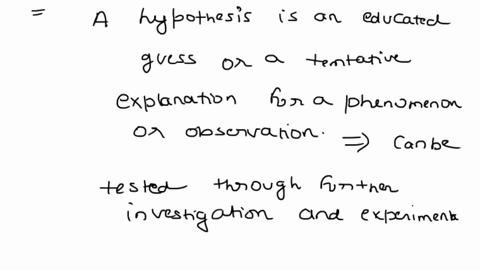 = A hypothesis is an educated
guess or a tentative
explanation for a phenomenon
or observation. ⇒ Can be
tested through further
investigation and experiments